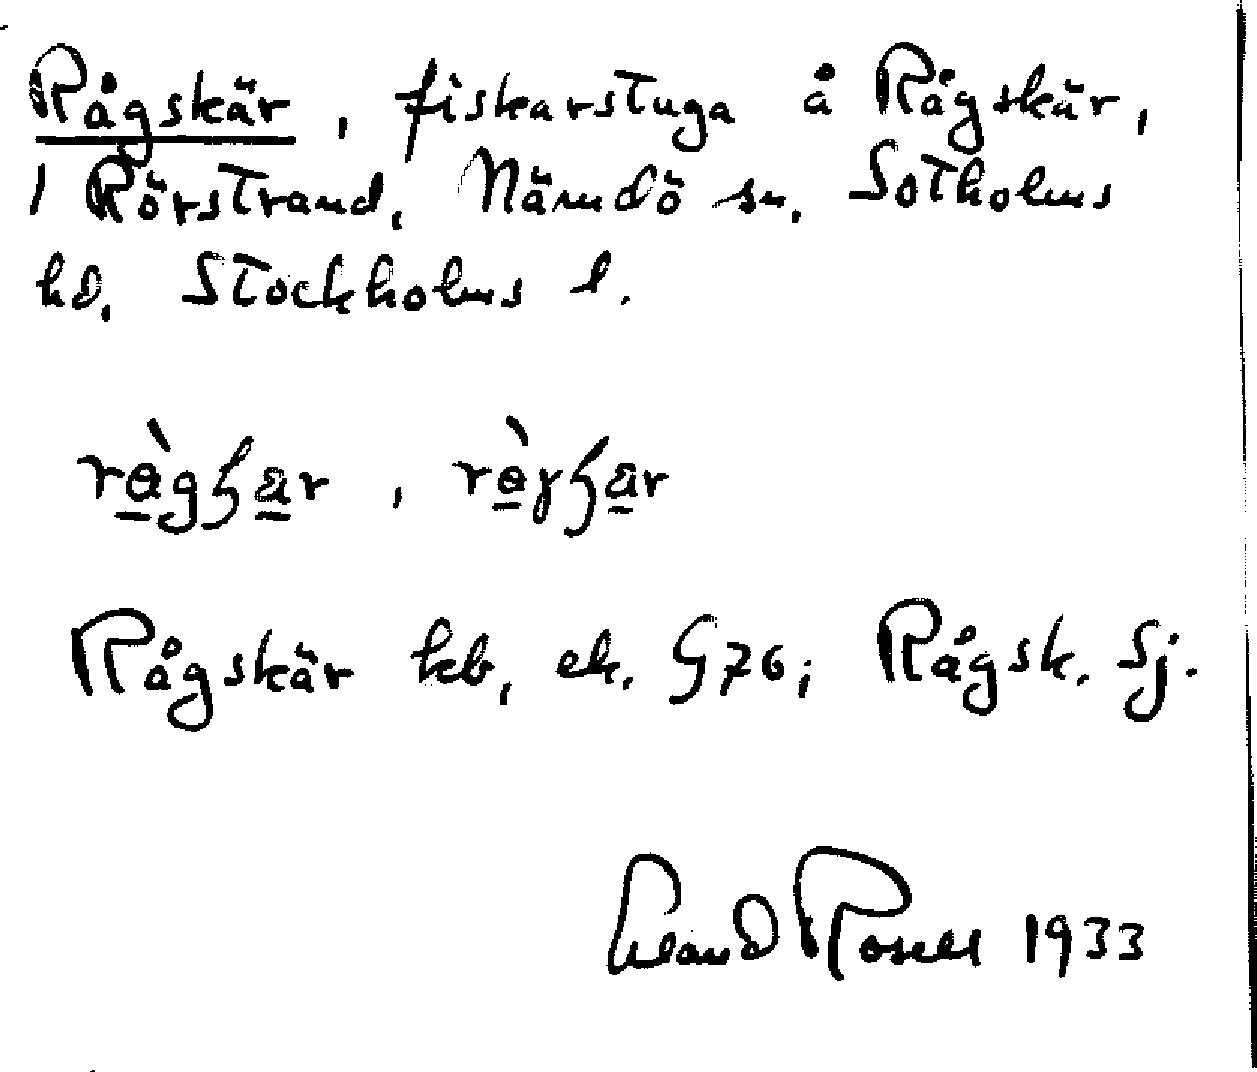 Rågskär, fiskarstuga å Rågskär,
1 Rörstrand, Nämdö sn, Sotholms
hd, Stockholms l.
Rågskär kb, ek. G76; Rågsk. Sj.
Rosell 1933